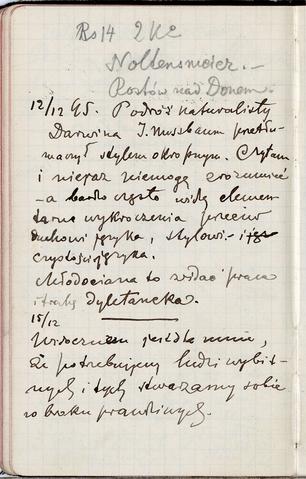 Rs 14 2 Ke
Noltensmeier. —
Rostów nad Donem.
12/12 95. Podróż naturalisty
Darwina J. Nusbaum przetłu-
maczył stylem okropnym. Czytam
i nieraz niemogę zrozumieć
— a bardzo często widzę elemen-
tarne wykroczenia przeciw
duchowi języka, stylowi. — i
czystości języka.
Młodociana to widać praca
i trąfia dyletancka.
15/12
Widocznem jest dla mnie,
że potrzebujemy ludzi wybit-
nych i tych stwarzamy sobie
w braku prawdziwych.